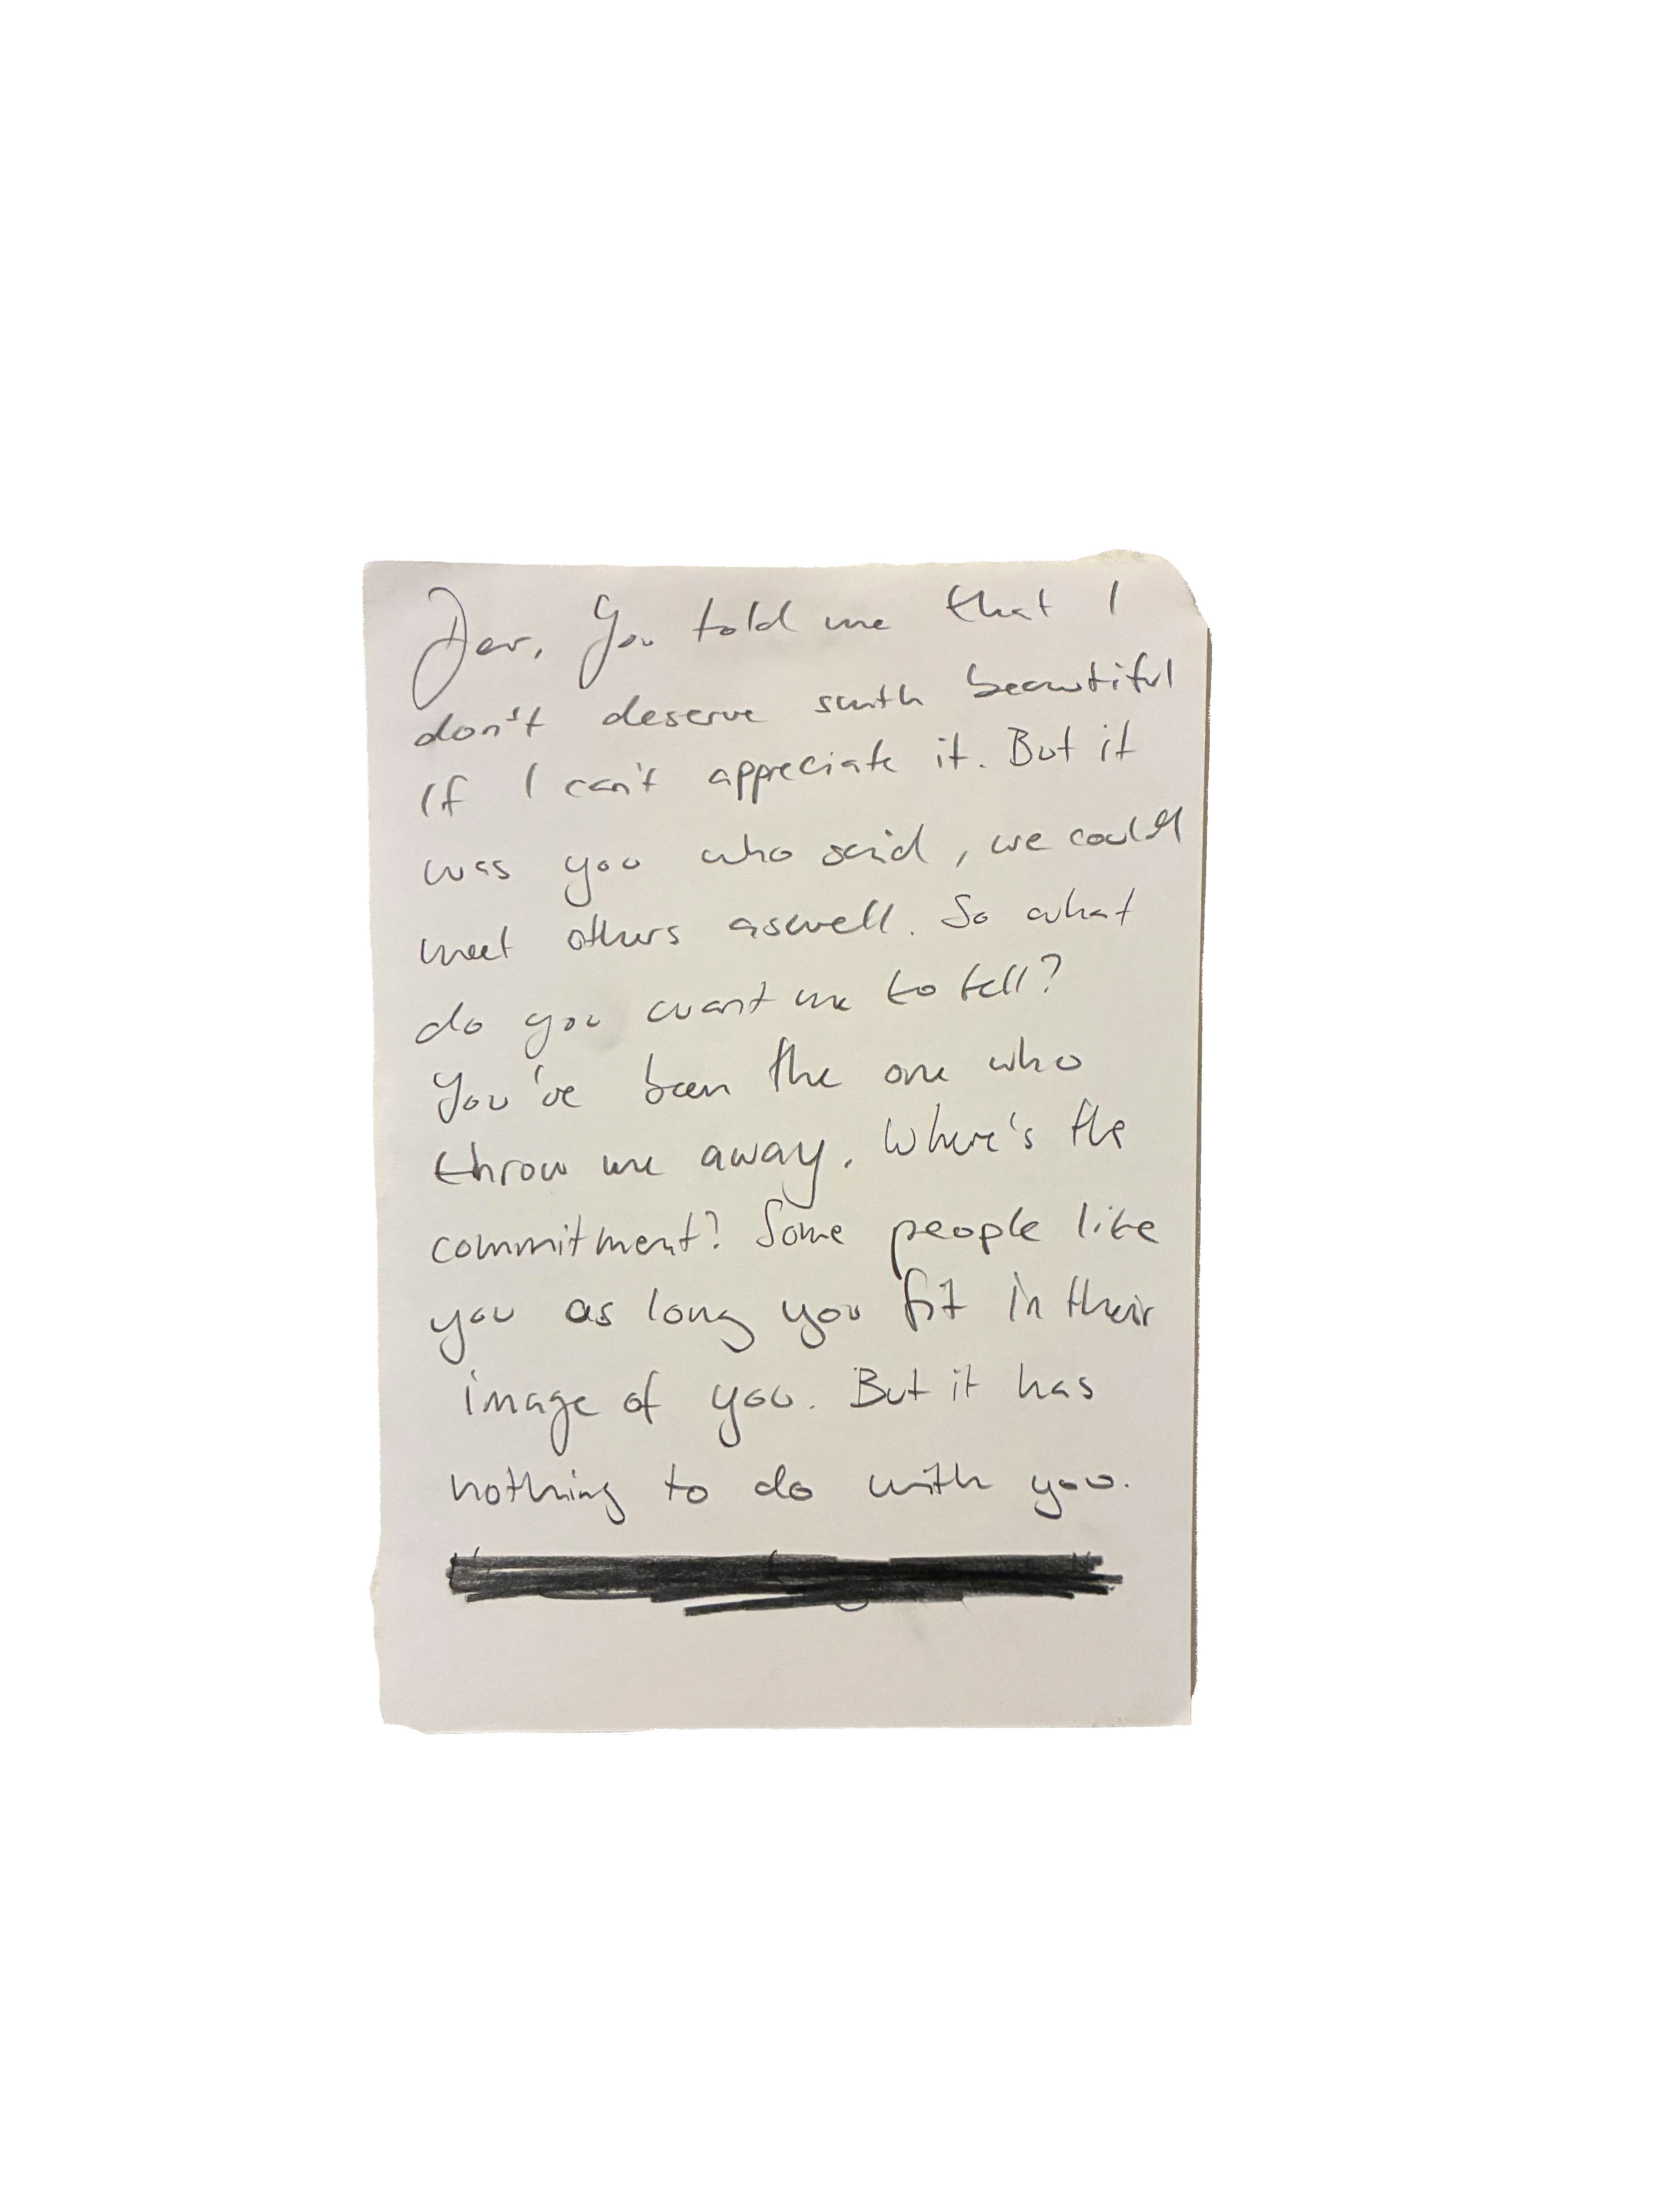 Dear, You told me that I
don't deserve smth beautiful
If I can't appreciate it. But it
was you who said, we could
meet others aswell. So what
do you want me to tell?
You've been the one who
throw me away. Where's the
commitment? Some people like
you as long you fit in their
image of you. But it has
nothing to do with you.